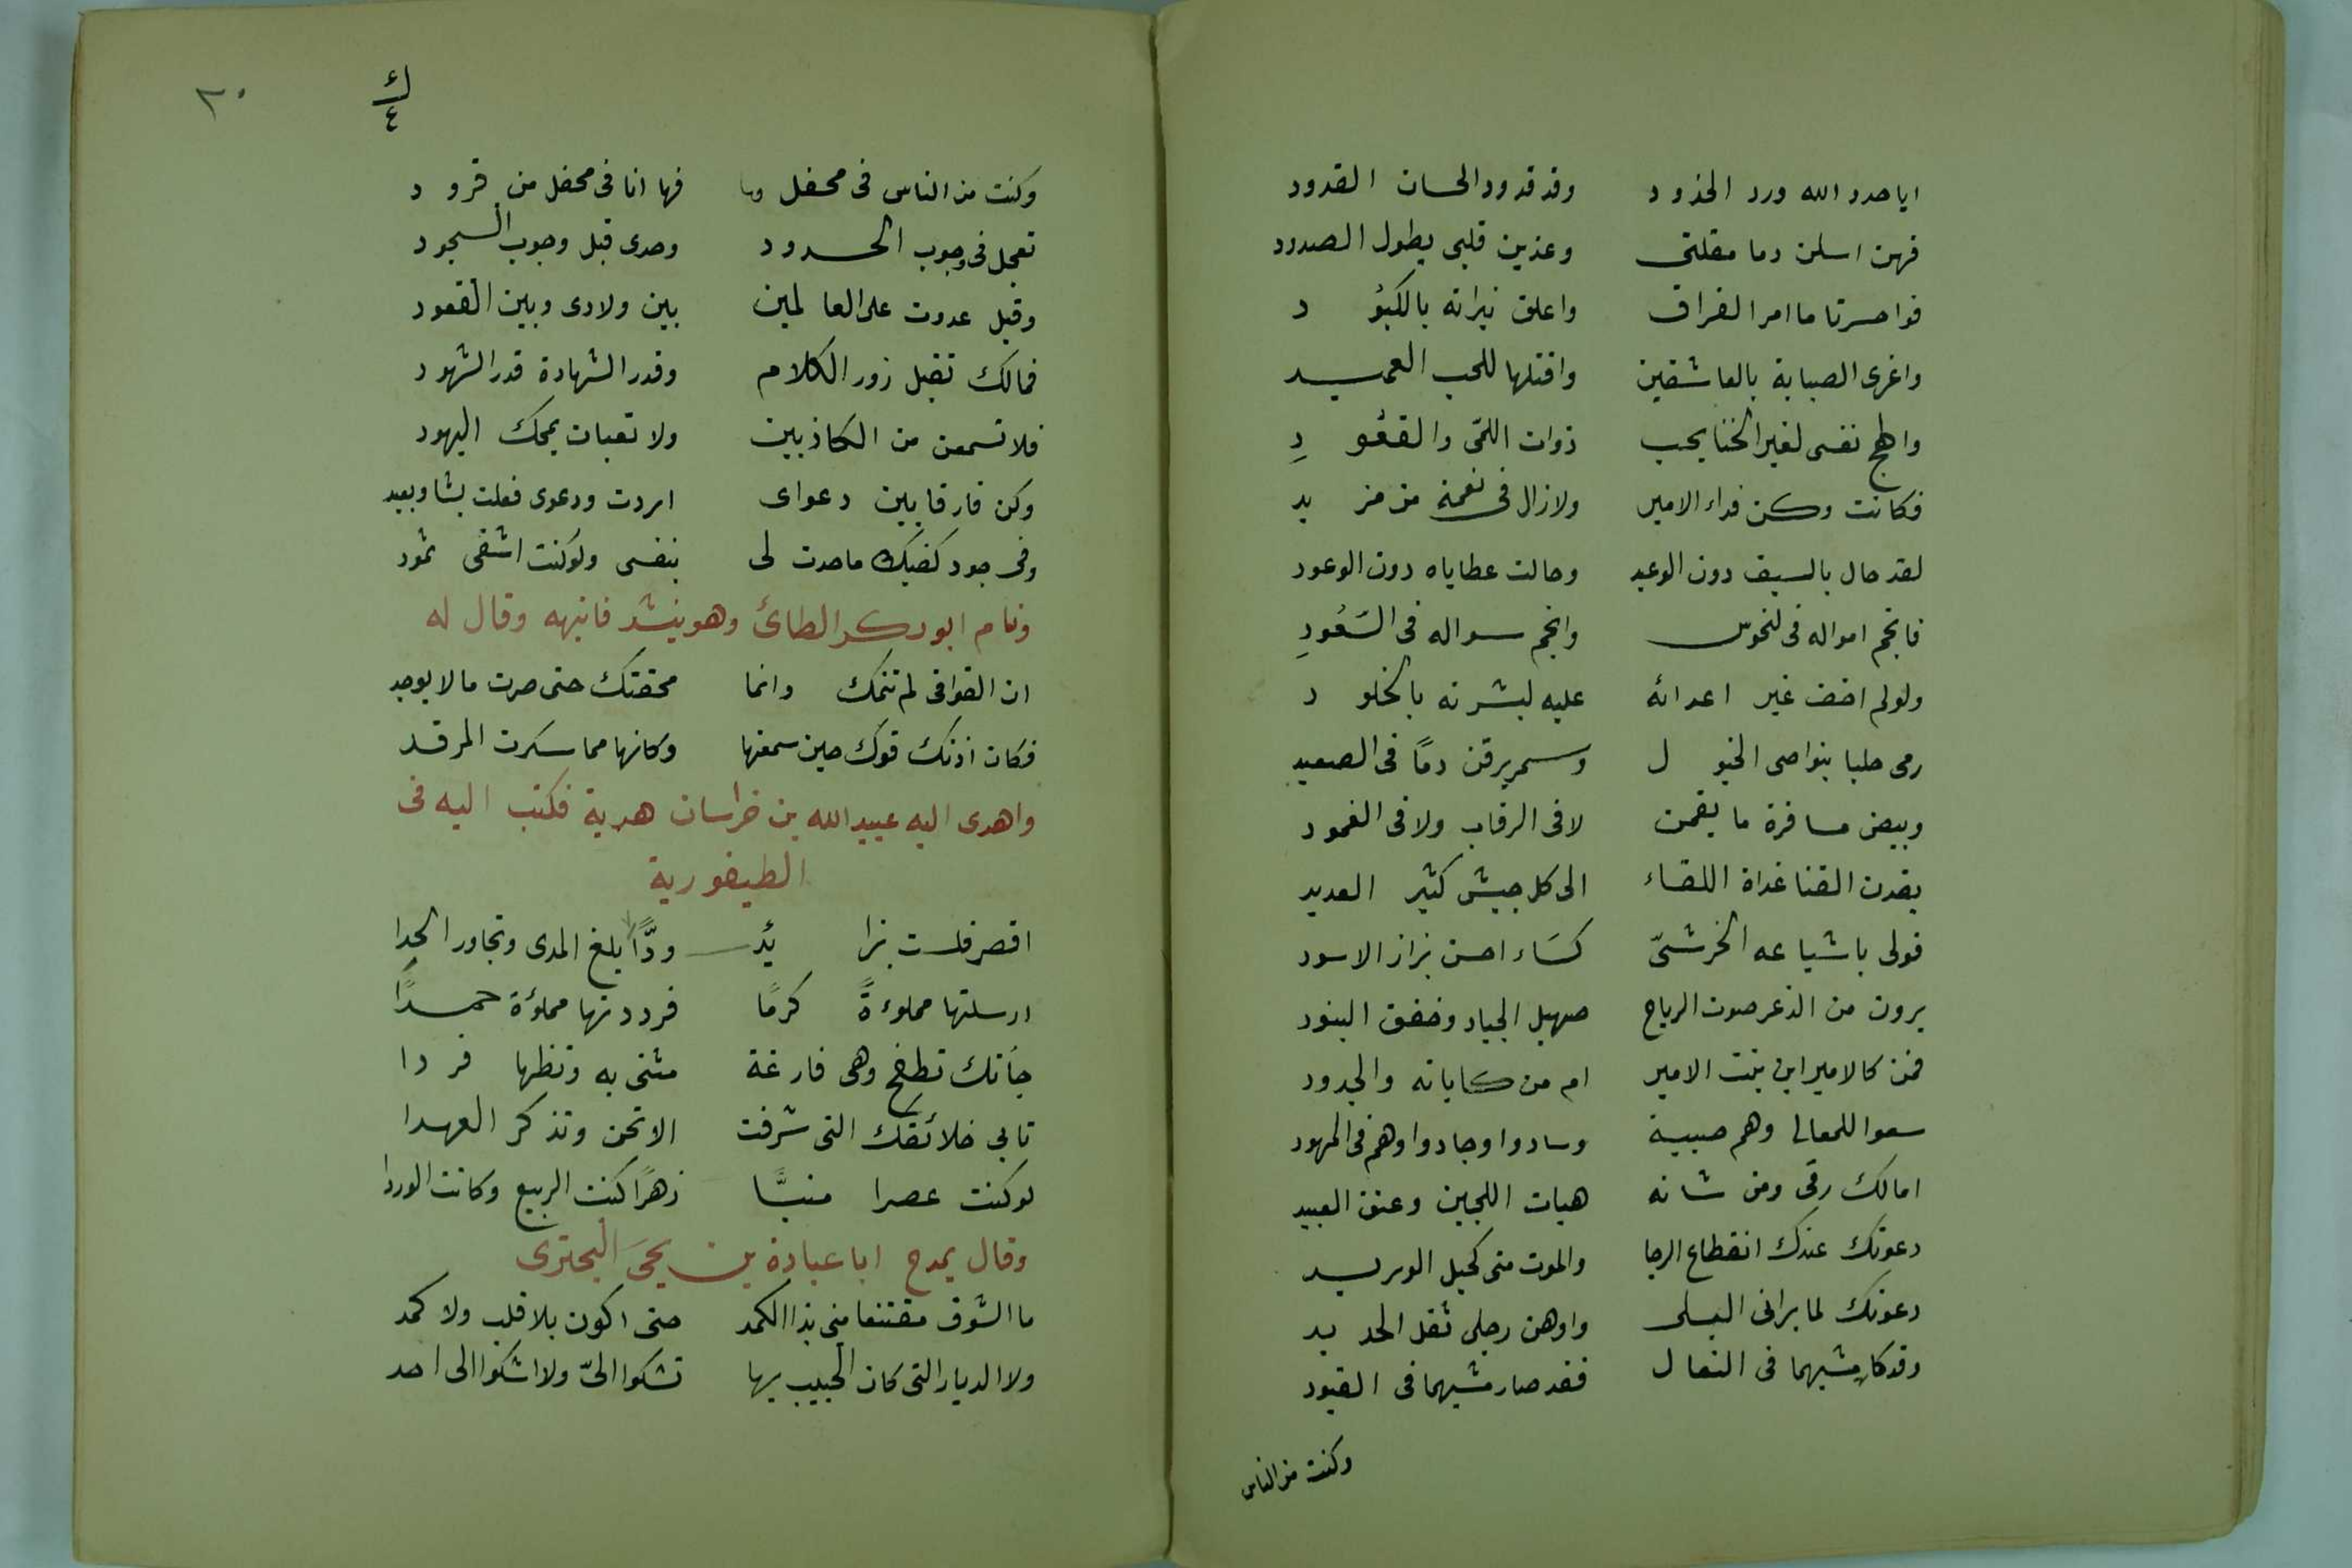 ايا حدد الله ورد الخدود وقد قدود الحسان القدود
فهن اسلن دما مقلتى وعذبن قلبى بطول الصدود
فواحسرتا ما امر الفراق واعلق نيرانه بالكبود
واغرى الصبابة بالعاشقين واقتلها للمحب العميد
والهج نفسى لغير الخنا بحب ذوات اللمّى والقعُودِ
فكانت وكن فداء الامير ولازال فى نعمة من مزيد
لقد حال بالسيف دون الوعيد وحالت عطاياه دون الوعود
فانجم امواله فى النحوس وانجم سواله فى السّعُودِ
ولو لم اخف غير اعدائه عليه لبشرته بالخلود
رمى حلبا بنواصى الخيول وسمر يرقن دمًا فى الصعيد
وبيض مسافرة ما يقمن لا فى الرقاب ولا فى الغمود
يقدن القنا غداة اللقاء الى كل جيش كثير العديد
فولى باشياعه الخرشنىّ كشاء احسن بزار الاسود
يرون من الذعر صوت الرياح صهيل الجياد وخفق البنود
فمن كالامير ابن بنت الامير ام من كاباته والجدود
سعوا للمعالى وهم صبية وسادوا وجادوا وهم فى المهود
امالك رقى ومن شانه هبات اللجين وعتق العبيد
دعوتك عندك انقطاع الرجا والموت منى كحبل الوريد
دعوتك لما برانى البلى واوهن رجلى ثقل الحديد
وقد كان مشيهما فى النعال فقد صار مشيهما فى القيود
وكنت من الناس
٢٠
وكنت من الناس فى محفل وها فها انا فى محفل من قرود
تعجل فى وجوب الحدود وحدى قبل وجوب السجود
وقيل عدوت على العالمين بين ولادى وبين القعود
فمالك تقبل زور الكلام وقدر الشهادة قدر الشهود
فلا تسمعن من الكاذبين ولا تعبان بمحك اليهود
وكن فارقا بين دعواى اردت ودعوى فعلت بشاو بعيد
وفى جود كفيك ما جدت لى بنفسى ولو كنت اشقى ثمود
ونام ابو دكر الطائى وهو ينشد فانبهه وقال له
ان القوافى لم تنمك وانما محقتك حتى صرت ما لا يوجد
فكان اذنك فوك حين سمعتها وكانها مما سكرت المرقد
واهدى اليه عبيد الله بن خراسان هدية فكتب اليه فى
الطيفورية
اقصر فلست بزائدى ودًّا بلغ المدى وتجاور الحدا
ارسلتها مملوءةً كرمًا فرددتها مملؤة حمدًا
جأتك تطفح وهى فارغة مثنى به وتظنها فردا
تابى خلائقك التى شرفت الا تحن وتذكر العهدا
لو كنت عصرا منبتًا زهرًا كنت الربيع وكانت الوردا
وقال يمدح ابا عبادة بن يحيَى البحترى
ما الشوق مقتنعا منى بذا الكمد حتى اكون بلا قلب ولا كمد
ولا الديار التى كان الحبيب بها تشكوا الىّ ولا اشكوا الى احد